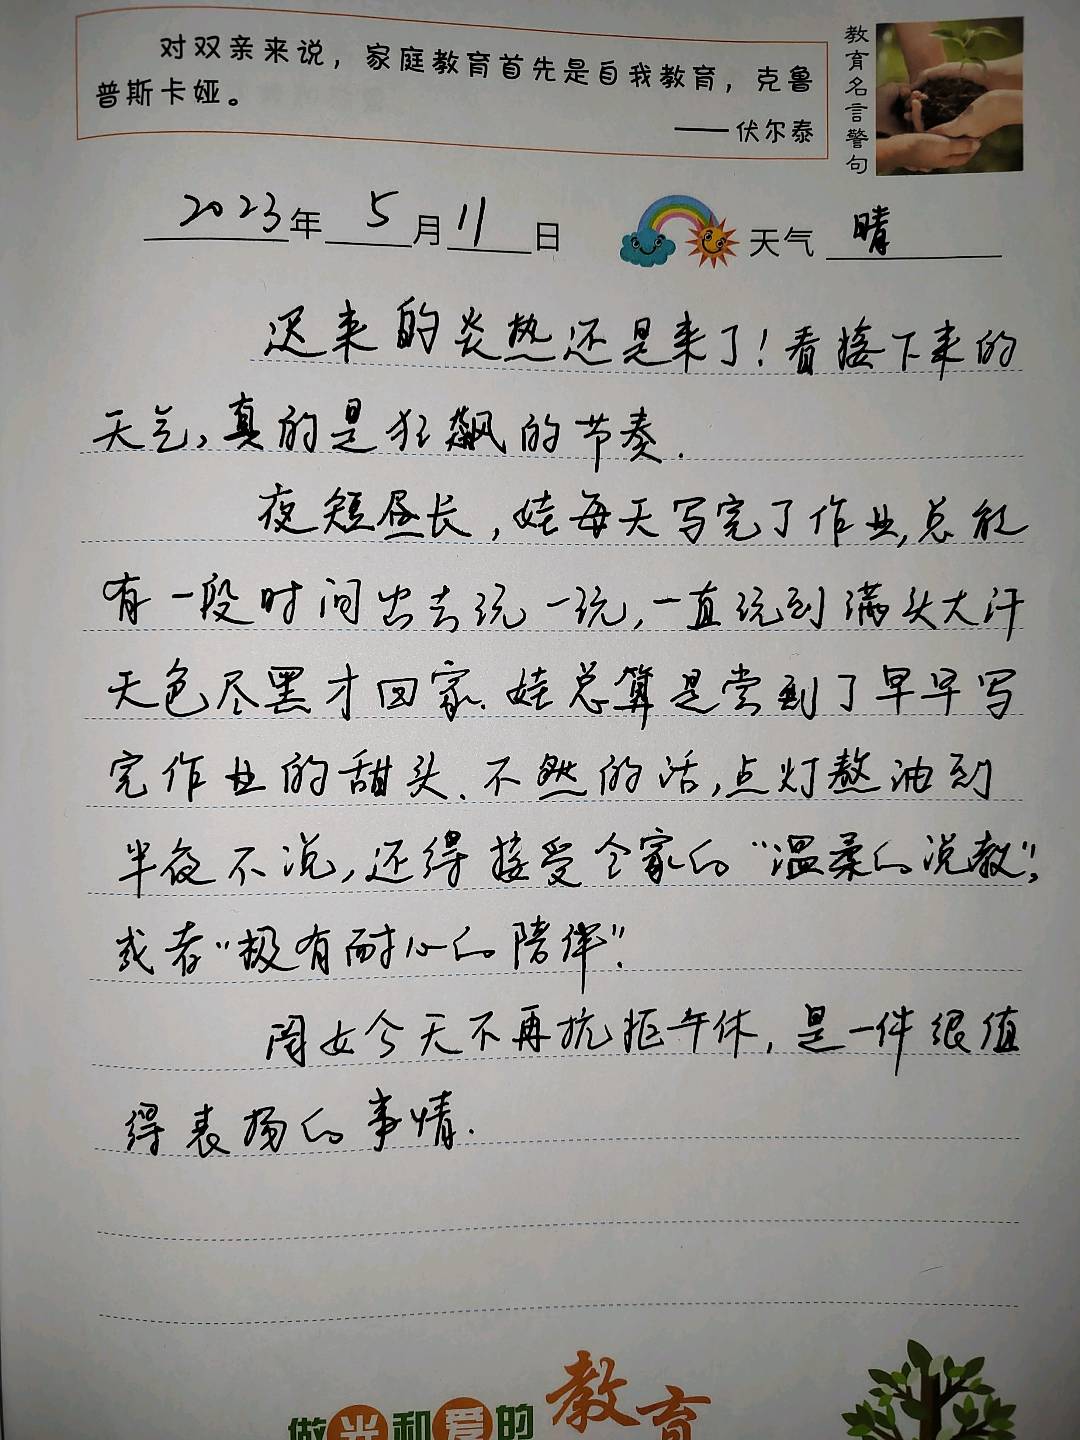 对双亲来说，家庭教育首先是自我教育，克鲁
普斯卡娅。
——伏尔泰
教育名言警句
2023年 5月11日 天气 晴
迟来的炎热还是来了！看接下来的
天气，真的是狂飙的节奏.
夜短昼长，娃每天写完了作业，总能
有一段时间出去玩一玩，一直玩到满头大汗
天色尽黑才回家.娃总算是尝到了早早写
完作业的甜头.不然的话，点灯熬油到
半夜不说，还得接受全家的“温柔的说教”，
或者“极有耐心的陪伴”.
闺女今天不再抗拒午休，是一件很值
得表扬的事情.
做光和爱的教育